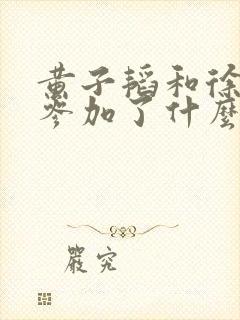 黄子韬和徐
参加了什麼
嚴究